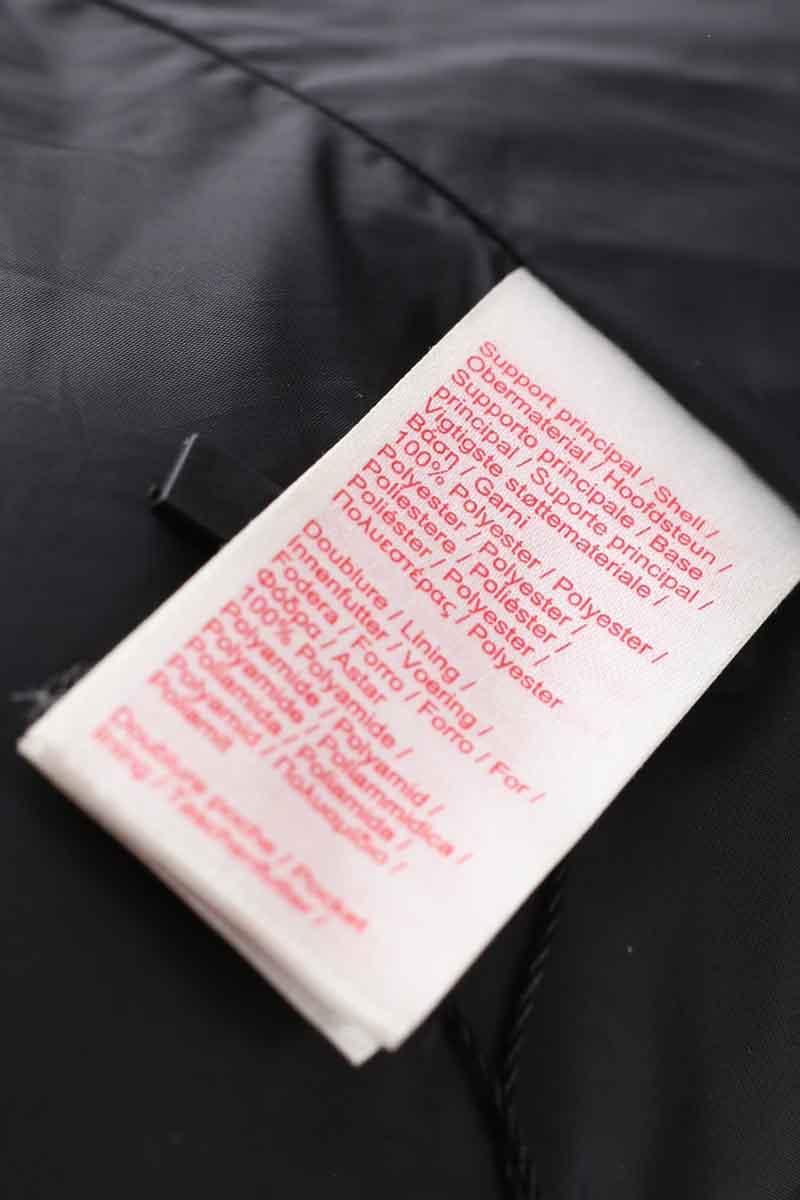 Support principal / Shell /
Obermaterial / Hoofdsteun /
Supporto principale / Base
principal / Suporte principal /
Vigtigste støttemateriale /
Βάση / Garni
100% Polyester / Polyester /
Polyester / Polyester /
Poliestere / Poliéster /
Poliéster / Polyester /
Πολυεστέρας / Polyester
Doublure / Lining /
Innenfutter / Voering /
Fodera / Forro / Forro / For /
Φόδρα / Astar
100% Polyamide /
Polyamide / Polyamid /
Polyamide / Poliammidica /
Poliamida / Poliamida /
Polyamid / Πολυαμίδιο /
Poliamit
Doublure poche / Pocket
lining / Taschenfutter /